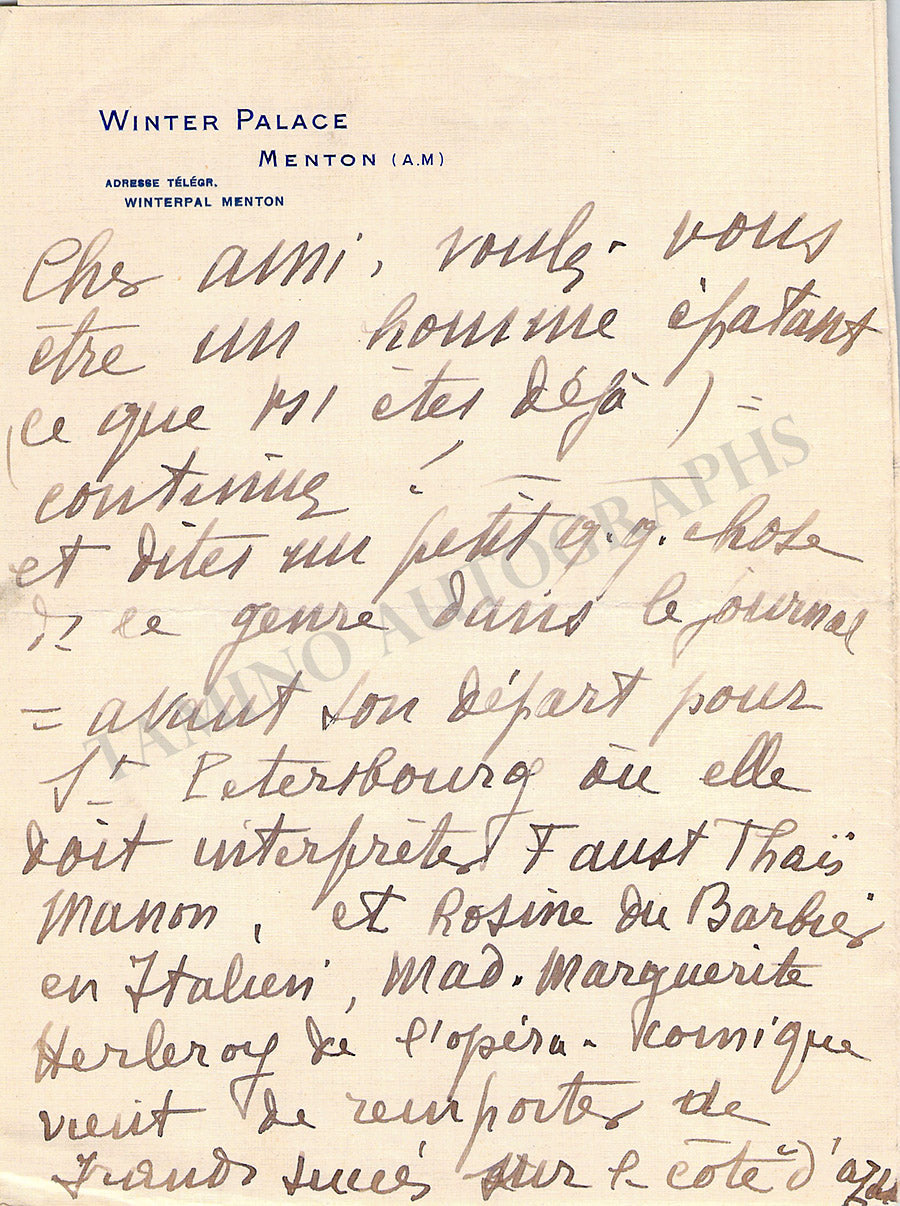 WINTER PALACE
MENTON (A.M)
ADRESSE TÉLÉGR.
WINTERPAL MENTON
Cher ami, voulez-vous
être un homme épatant
(ce que vs êtes déjà) =
continuez !
et dites un petit q.q. chose
de ce genre dans le journal
= avant son départ pour
St Petersbourg où elle
doit interpréter Faust Thaïs
Manon, et Rosine du Barbier
en Italien, Mad. Marguerite
Herleroy de l'opéra-comique
vient de remporter de
grands succés sur la côte d'azur
TAMINO AUTOGRAPHS